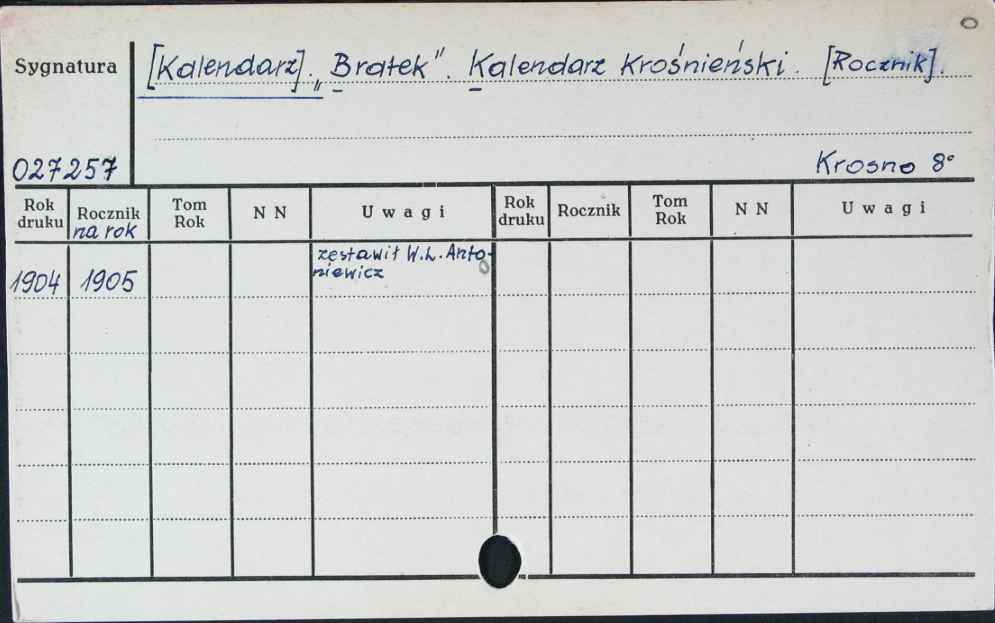 Sygnatura
[Kalendarz]. „Bratek”. Kalendarz Krośnieński. [Rocznik].
027257
Krosno 8°
Rok druku Rocznik na rok Tom Rok N N Uwagi Rok druku Rocznik Tom Rok N N Uwagi
1904 1905 zestawił W.L. Anto-
niewicz